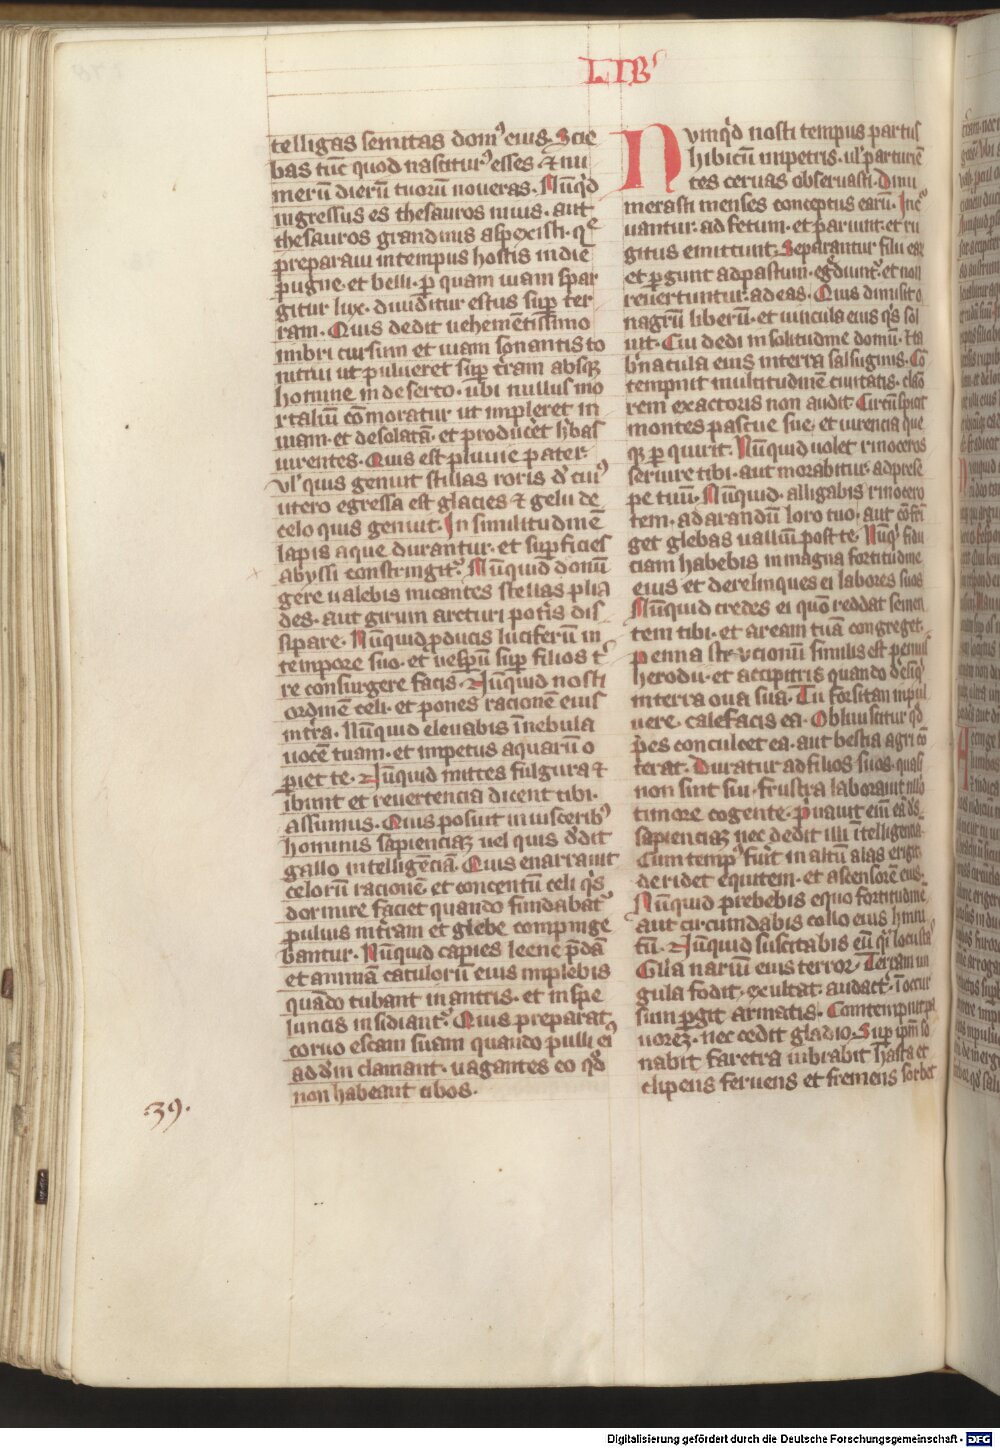 LIBꝰ
telligas semitas domꝰ eius. Scie
bas tūc quod nasciturꝰ esses ⁊ nu
merū dierū tuorū noueras. Nūq̇d
ingressus es thesauros niuis. aut
thesauros grandinis aspexisti. qͤ
p̄paraui in tempus hostis in diē
pugne. et belli. ꝑ quam uiam spar
gitur lux. diuiditur estus suꝑ ter
ram. Quis dedit uehementissimo
imbri cursum et uiam sonantis to
nitrui ut pulueret suꝑ t̄ram absq̨
homine in deserto. ubi nullus mo
rtaliū cōmoratur ut impleret in
uiam. et desolatā. et produceret h̄bas
uirentes. Quis est pluuie pater.
Ul̓ quis genuit stillas roris d̓ cuiꝰ
utero egressa est glacies ⁊ gelu de
celo quis genuit. In similitudinē
lapis aque durantur. et suꝑficies
abyssi constringit᷑. Nūquid coniū
gere ualebis micantes stellas plia
des. aut girum arcturi potis dis
sipare. Nūquid ꝓducis luciferū in
tempore suo. et uesꝑū suꝑ filios t̓
re consurgere facis. Nūquid nosti
ordinē celi. et pones racionē eius
in t̄ra. Nūquid eleuabis ī nebula
uocē tuam. et impetus aquarū o
periet te. Nūquid mittes fulgura ⁊
ibunt et reuertencia dicent tibi.
assumus. Quis posuit in uiscerib̓
hominis sapienciaꝫ uel quis d̓dit
gallo intelligēciā. Quis enarrauit
celorū racionē. et concentū celi q̇s
dormire faciet quando fundabat᷑
puluis in t̄ram et glebe compinge
bantur. Nūquid capies leene p̄dā
et animā catulorū eius implebis
quādo cubant in antris. et in spe
luncis insidiant᷑. Quis preparat
coruo escam suam quando pulli eiꝰ
ad dm̄ clamant. uagantes eo qd̓
non habeant cibos.
.39.
Nvmq̇d nosti tempus partus
hibicū in petris. ul̓ parturiē
tes ceruas obseruasti. Dinu
merasti menses conceptus earū.
uantur. ad fetum. et pariunt. et ru
gitus emittunt. Separantur filii eaꝝ
et ꝑgunt ad pastum. eg̓diunt᷑. et non
reuertuntur. ad eas. Quis dimisit o
nagrū liberū. et uincula eius q̇s sol
uit. Cui dedi in solitudine domū. ⁊ ta
b̓nacula eius in terra salsuginis. Cō
tempnit multitudinē ciuitatis. clāo
rem exactoris non audit. Circūspicit
montes pascue sue. et uirencia que
q̨ ꝑquirit. Nūquid uolet rinoceros
seruire tibi. aut morabitur. ad prese
pe tuū. Nūquid. alligabis rinocero
tem. ad arandū loro tuo. aut cōfrī
get glebas ualliū post te. Nūq̇ fidu
ciam habebis in magna fortitudine
eius et derelinques ei labores tuos
Nūquid credes ei quō reddat semen
tem tibi. et aream tuā congreget.
Penna strucionū similis est pennis
herodii. et accipitris quando
in terra oua sua. Tu forsitan in pul
uere. calefacis ea. Obliuiscitur qd̓
pes conculcet ea. aut bestia agri cō
terat. Duratur ad filios suos. quasi
non sint sui. frustra laborauit nullo
timore cogente. Priuauit eni͂ eā d̄s
sapienciaꝫ nec dedit illi ītelligencia
Cum tempꝰ fuīt in altū alas erigit
deridet equitem. et ascensorē eius.
Nūquid prebebis equo fortitudinē.
aut circumdabis collo eius hinni
tū. Nūquid suscitabis eū q̇si locustas
Glā nariū eius terror. Terram un
gula fodit. exultat. audact̓. ī occur
sum ꝑgit armatis. Contempnit pa
uorē. nec cedit gladio. Suꝑ ip̄m so
nabit faretra uibrabit hasta et
clipeus feruens et fremens sorbet
Digitalisierung gefördert durch die Deutsche Forschungsgemeinschaft - DFG